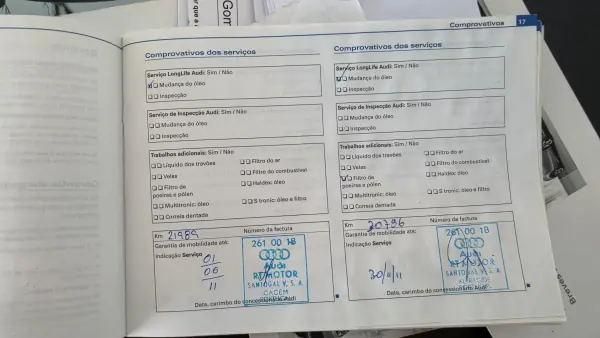 Comprovativos 17
Comprovativos dos serviços
Serviço LongLife Audi: Sim / Não
Mudança do óleo
Inspecção
Serviço de Inspecção Audi: Sim / Não
Mudança do óleo
Inspecção
Trabalhos adicionais: Sim / Não
Líquido dos travões
Filtro do ar
Velas
Filtro do combustível
Filtro de poeiras e pólen
Haldex: óleo
Multitronic: óleo
S tronic: óleo e filtro
Correia dentada
Km 21989
Número da factura
Garantia de mobilidade até:
Indicação Serviço
01
06
11
261 00 18
Audi
SANTOGAL V, S. A.
CACÉM
Data, carimbo do concessionário Audi
Comprovativos dos serviços
Serviço LongLife Audi: Sim / Não
Mudança do óleo
Inspecção
Serviço de Inspecção Audi: Sim / Não
Mudança do óleo
Inspecção
Trabalhos adicionais: Sim / Não
Líquido dos travões
Filtro do ar
Velas
Filtro do combustível
Filtro de
poeiras e pólen
Haldex: óleo
Multitronic: óleo
S tronic: óleo e filtro
Correia dentada
Km 30796
Número da factura
Garantia de mobilidade até:
Indicação Serviço
30/11/11
261 00 18
Audi
SANTOGAL V, S. A.
Data, carimbo do concessionário Audi